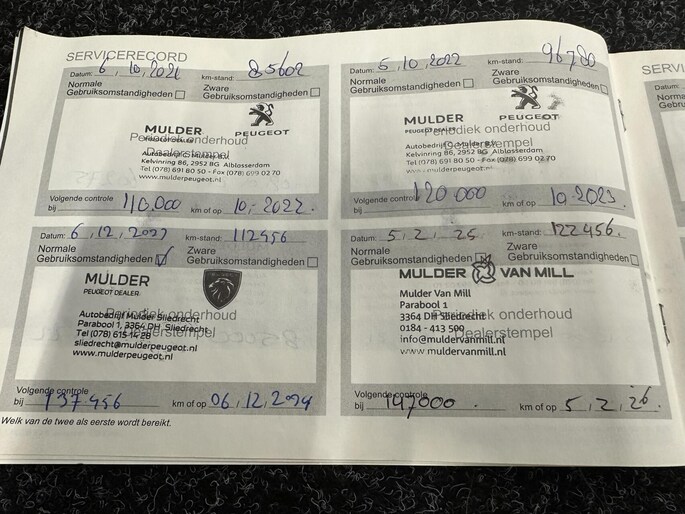 SERVICERECORD
Datum: 6, 10, 2021 km-stand: 85602
Normale Gebruiksomstandigheden
Zware Gebruiksomstandigheden
MULDER
PEUGEOT DEALER
PEUGEOT
Periodiek onderhoud
Dealerstempel
Autobedrijf G. Mulder B.V.
Kelvinring 86, 2952 BG Alblasserdam
Tel (078) 691 80 50 - Fax (078) 699 02 70
www.mulderpeugeot.nl
Volgende controle
bij 110.000 km of op 10-2022.
Datum: 5, 10, 2022 km-stand: 96780
Normale Gebruiksomstandigheden
Zware Gebruiksomstandigheden
MULDER
PEUGEOT DEALER
PEUGEOT
Periodiek onderhoud
Dealerstempel
Autobedrijf G. Mulder B.V.
Kelvinring 86, 2952 BG Alblasserdam
Tel (078) 691 80 50 - Fax (078) 699 02 70
www.mulderpeugeot.nl
Volgende controle
bij 120.000 km of op 10-2023.
Datum: 6, 12, 2023 km-stand: 112456
Normale Gebruiksomstandigheden
Zware Gebruiksomstandigheden
MULDER
PEUGEOT DEALER
Periodiek onderhoud
Dealerstempel
Autobedrijf Mulder Sliedrecht
Parabool 1, 3364 DH Sliedrecht
Tel (078) 615 14 28
sliedrecht@mulderpeugeot.nl
www.mulderpeugeot.nl
Volgende controle
bij 137.456 km of op 06, 12, 2024
Datum: 5, 2, 25 km-stand: 122456.
Normale Gebruiksomstandigheden
Zware Gebruiksomstandigheden
MULDER VAN MILL
Mulder Van Mill
Parabool 1
3364 DH Sliedrecht
0184 - 413 500
info@muldervanmill.nl
www.muldervanmill.nl
Periodiek onderhoud
Dealerstempel
Volgende controle
bij 147000 km of op 5, 2, 26
Welk van de twee als eerste wordt bereikt.